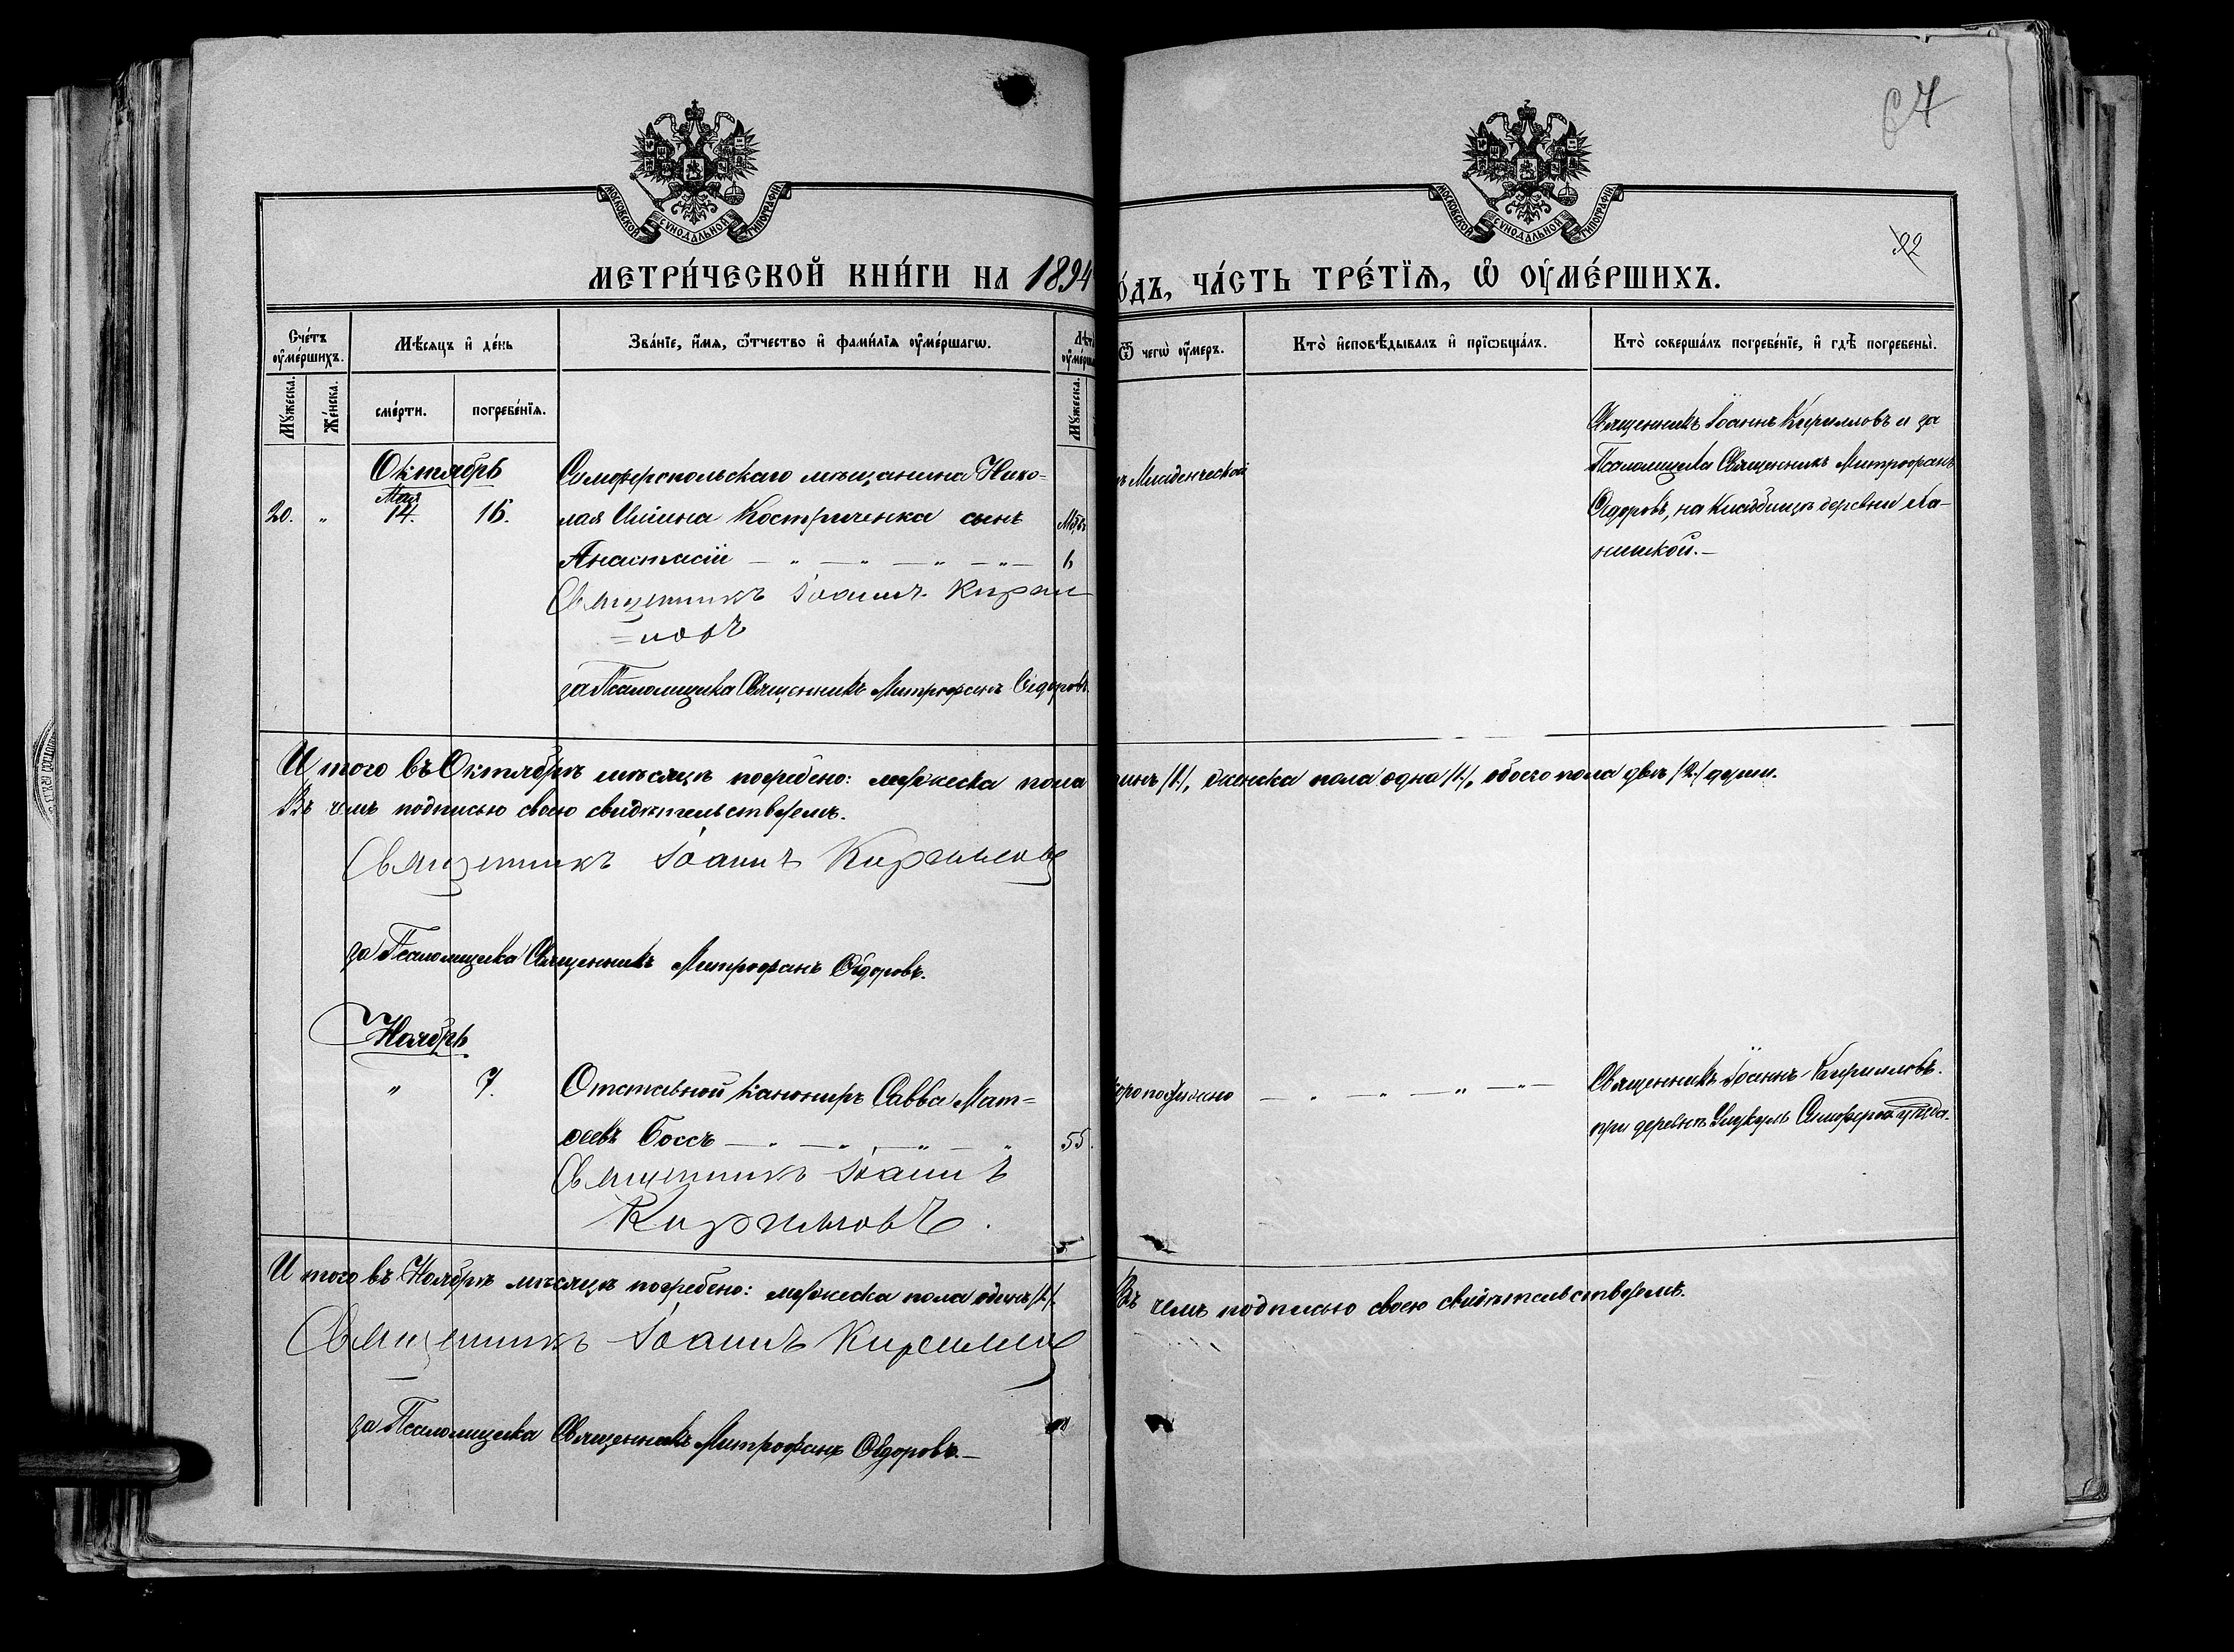 67
МОСКОВСКОЙ СѴНОДАЛЬНОЙ ТИПОГРАФІИ
МОСКОВСКОЙ СѴНОДАЛЬНОЙ ТИПОГРАФІИ
22
МЕТРИ́ЧЕСКОЙ КНИ́ГИ НА 1894
О́ДЪ, ЧА́СТЬ ТРЕ́ТЇѦ, Ѡ҆ ОУ҆МЕ́РШИХЪ.
Сче́тъ оу҆ме́ршихъ.
Мѣ́сяцъ и҆ де́нь
Зва́нїе, и҆́мя, ѻ҆́тчество и҆ фами́лїя оу҆ме́ршагѡ.
Лѣт
оу҆ме́рш
Ѿ чегѡ̀ оу҆́меръ.
Кто̀ и҆сповѣ́дывалъ и҆ прїѡбща́лъ.
Кто̀ соверша́лъ погребе́нїе, и҆ гдѣ̀ погребены̀.
Мꙋ́жеска.
Же́нска.
сме́рти.
погребе́нїя.
Мꙋ́жеска.
Октябрь
Мая
20. " 14. 16.
Симферопольскаго мѣщанина Нико-
лая Костриченка сынъ
Анастасій — " — " — " — " — 6
Священникъ Іоаннъ Кирил
=ловъ
за Псаломщика Священникъ Митрофанъ Сидоровъ.
ъ Младенческой
Священникъ Іоаннъ Кирилловъ и за
Псаломщика Священникъ Митрофанъ
Сидоровъ, на Кладбищѣ деревни
Итого въ Октябрѣ мѣсяцѣ погребено: мужеска пола
инъ /1/, женска пола одна /1/, обоего пола двѣ /2/ души.
Въ чемъ подписью своею свидѣтельствуемъ.
Священникъ Іоаннъ Кирилловъ
за Псаломщика Священникъ Митрофанъ Сидоровъ.
Ноябрь
" 7.
Отставной Канониръ Савва Мат-
ѳеевъ Боссъ — " — " — " — " 55.
Священникъ Іоаннъ
Кирилловъ.
— " — " — " — " —
Священникъ Іоаннъ Кирилловъ.
при деревнѣ Учкуль Симфероп. уѣзда.
Итого въ Ноябрѣ мѣсяцѣ погребено: мужеска пола одинъ /1/.
Въ чемъ подписью своею свидѣтельствуемъ.
Священникъ Іоаннъ Кирилловъ
за Псаломщика Священникъ Митрофанъ Сидоровъ.—